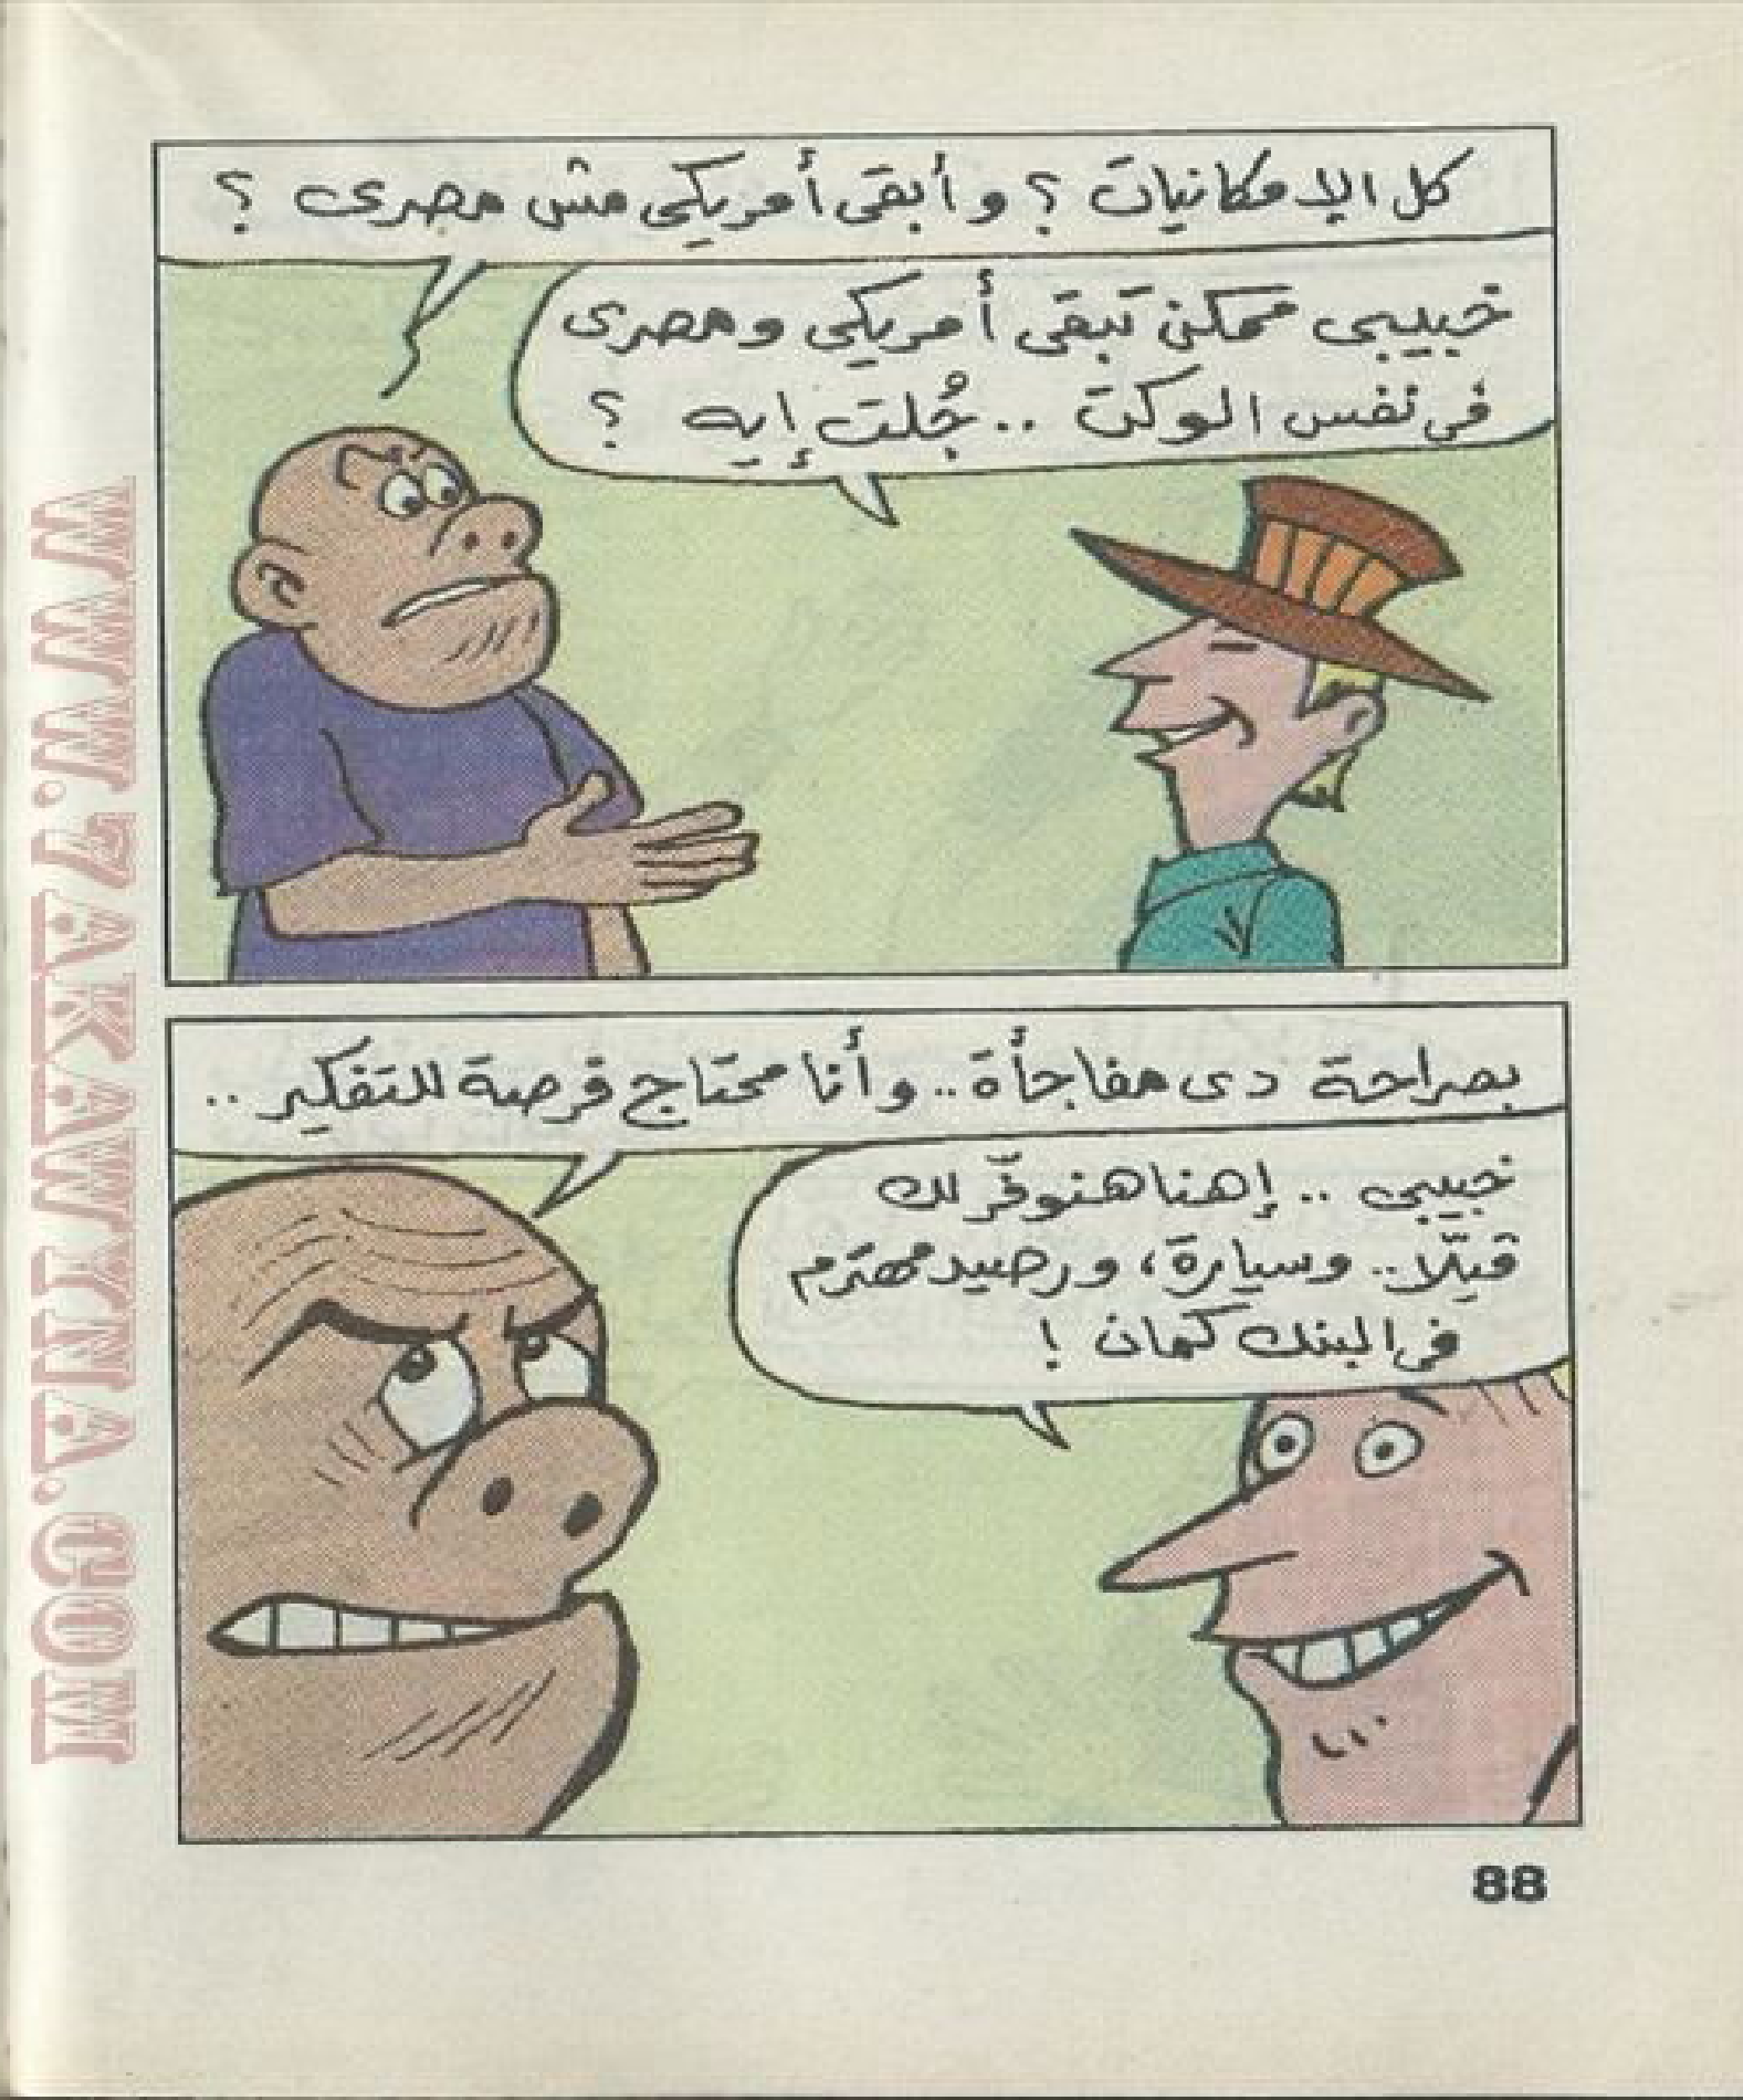 كل الإمكانيات ؟ وأبقى أمريكي مش مصرى ؟
خبيبى ممكن تبقى أمريكي ومصرى
فى نفس الوكت .. جُلت إيه ؟
بصراحة دى مفاجأة .. وأنا محتاج فرصة للتفكير ..
خبيبى .. إهنا هنوفّر لك
فيلّا .. وسيارة ، ورصيد مهترم
فى البنك كمان !
88
WWW.ZAKAWINNA.COM